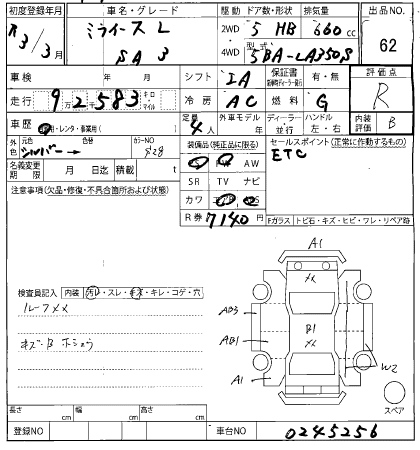 初度登録年月 車名・グレード 駆動 ドア数・形状 排気量 出品NO.
R3年3月 ミライース L 2WD 5 HB 660cc 62
SA3 4WD 型式 5BA-LA350S
車検 年 月 シフト IA 保証書 有・無 評価点 R
走行 9万2583 キロ マイル 冷房 AC 燃料 G
車歴 自・レンタ・事業用( ) 定員 4人 外車モデル 年 ディーラー 並行 ハンドル 左・右 内装評価 B
外色 元色 シルバー→ 色替 カラーNO S28 装備品(純正品に限る) セールスポイント(正常に作動するもの)
名義変更期限 月 日迄 積載 t PS PW AW ETC
注意事項(欠品・修復・不具合箇所および状態) SR TV ナビ
カワ エアB ABS
R券 7140円
Fガラス トビ石・キズ・ヒビ・ワレ・リペア跡
A1
検査員記入 内装 汚れ・スレ・キズ・キレ・コゲ・穴
ルーフメメ
キズ・B ホシュウ
メメ
AB3
AB1
B1
メメ
A1
W2
スペア
長さ cm 幅 cm 高さ cm
登録NO 車台NO 0245256